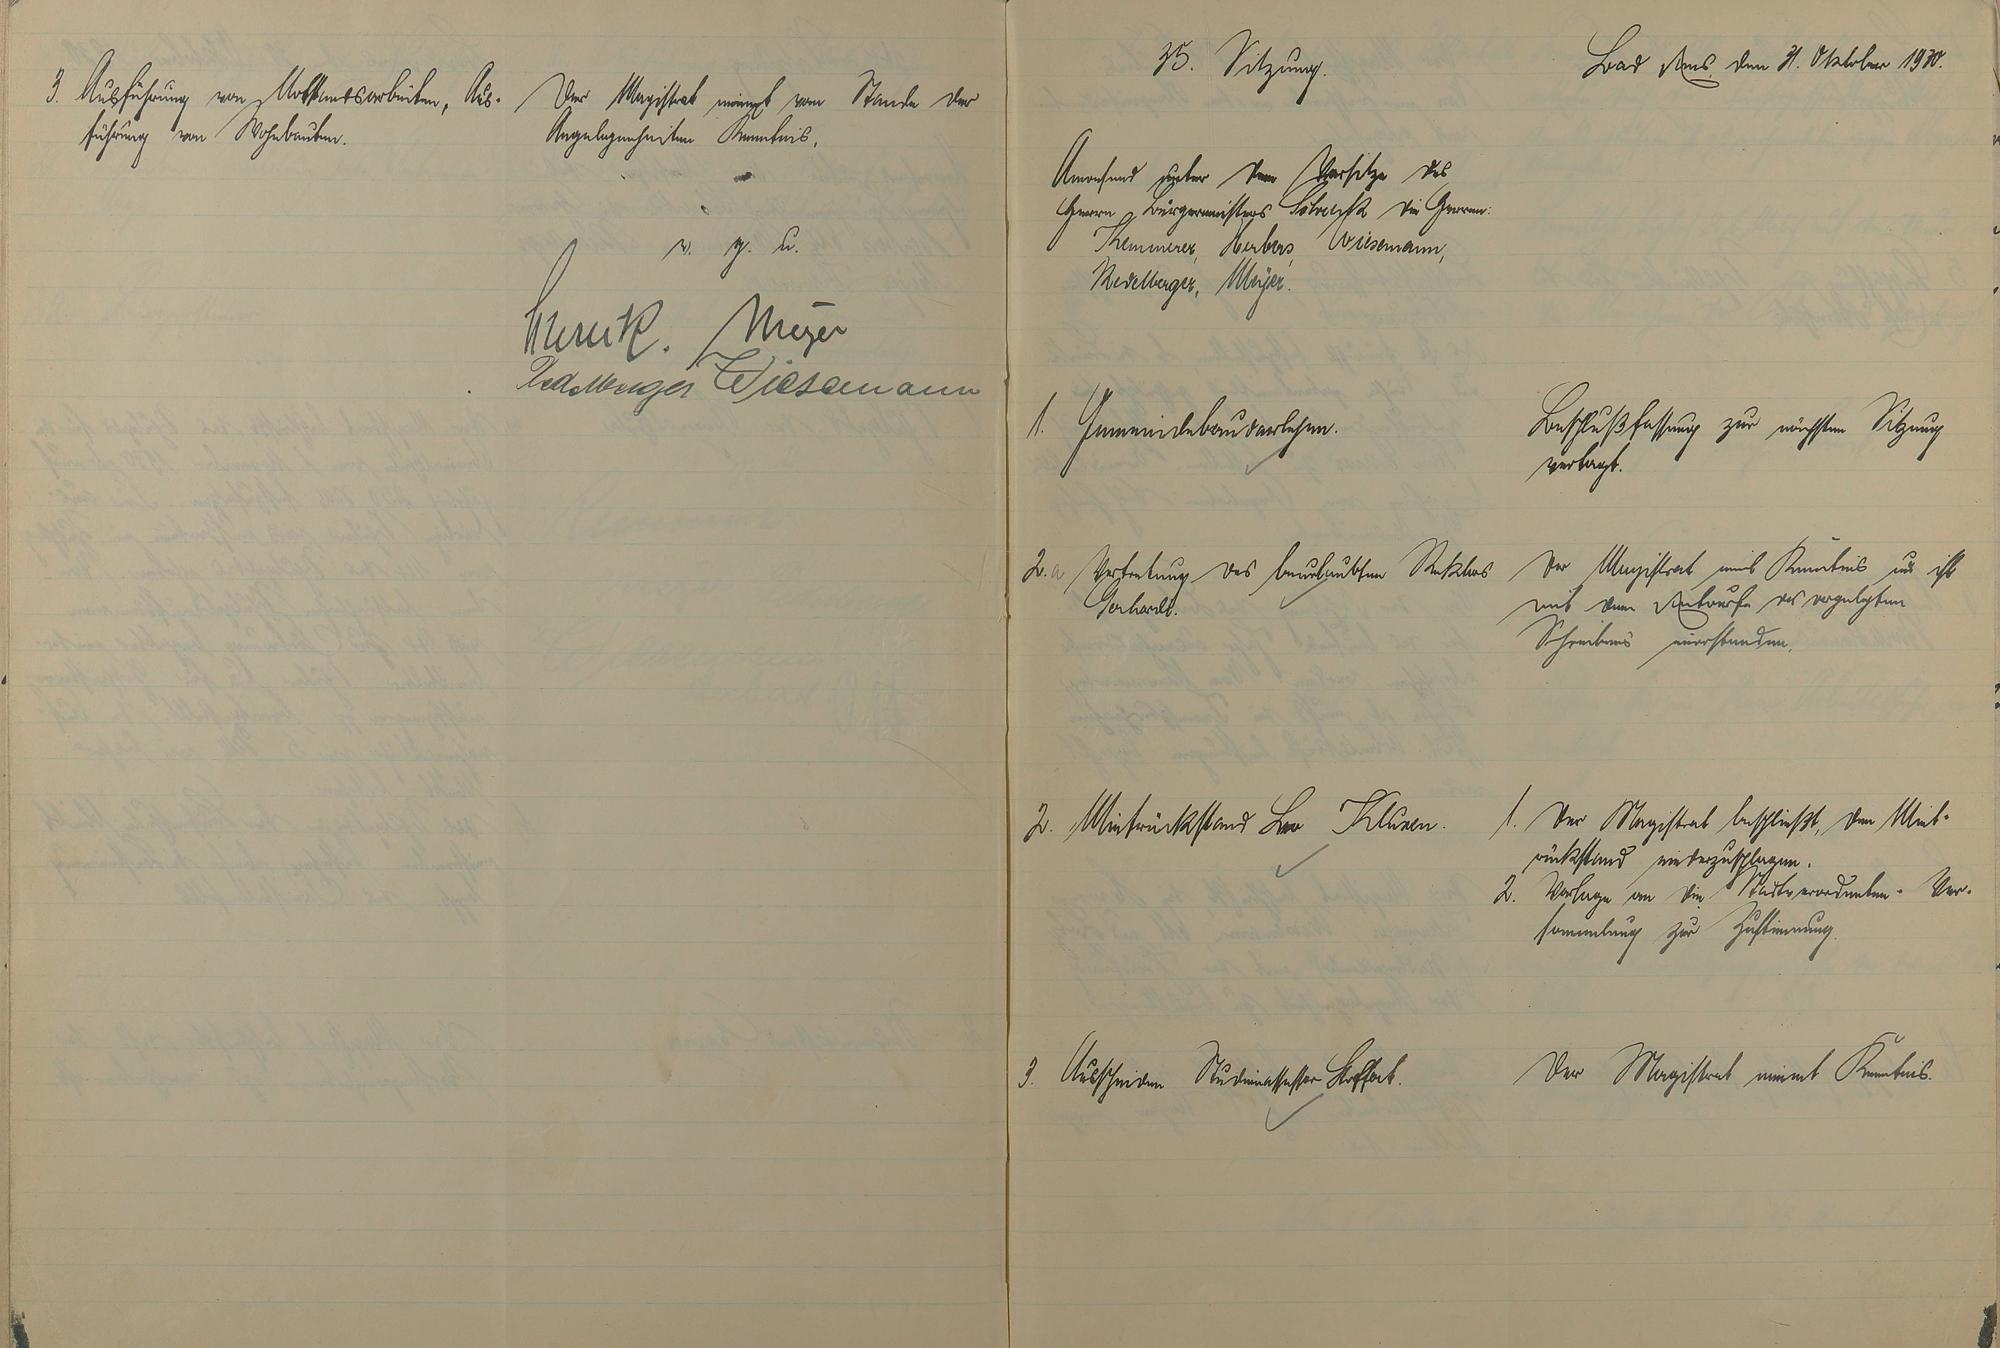 3. Ausführung von Notstandsarbeiten, Aus-
führung von Wohnbauten.
Der Magistrat nimmt vom Stande der
Angelegenheiten Kenntnis.
v. g. u.
Meyer
Wiesemann
35. Sitzung.
Bad Ems, den 31. Oktober 1930.
Anwesend unter dem Vorsitze des
Herrn Bürgermeisters die Herren:
Kemmerer, Herbers, Wiesemann,
Medelberger, Meyer.
1. Gemeindebaudarlehen.
Beschlußfassung zur nächsten Sitzung
vertagt.
2.a Vertretung des beurlaubten Rektors
Gerhardt.
Der Magistrat nimt Kenntnis und ist
mit dem Entwurfe des vorgelegten
Schreibens einverstanden.
2. Mietrückstand Leo Klusen.
1. Der Magistrat beschließt, den Miet-
rückstand niederzuschlagen.
2. Vorlage an die Stadtverordneten-Ver-
sammlung zur Zustimmung.
3. Ausscheiden Studienassessor
Der Magistrat nimmt Kenntnis.